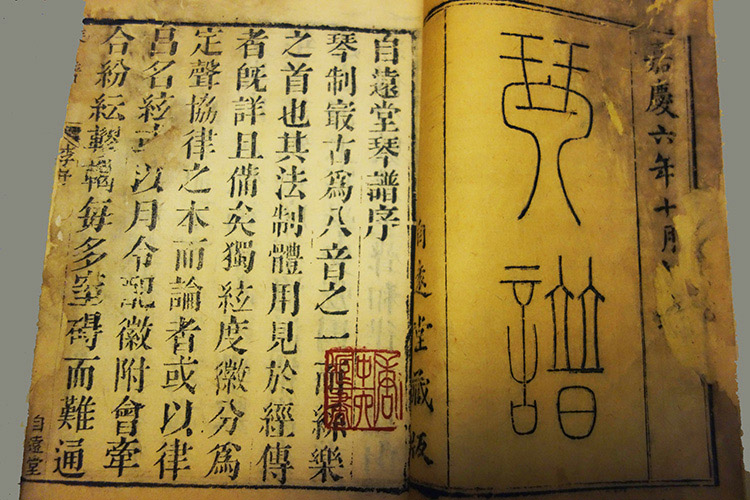 嘉慶六年十月
琴譜
自遠堂藏版
自遠堂琴譜序
琴制最古爲八音之一而絲樂
之首也其法制體用見於經傳
者旣詳且備矣獨絃度徽分爲
定聲協律之本而論者或以律
呂名絃或以月令配徽附會牽
合紛紜轇轕每多窒碍而難通
自遠堂